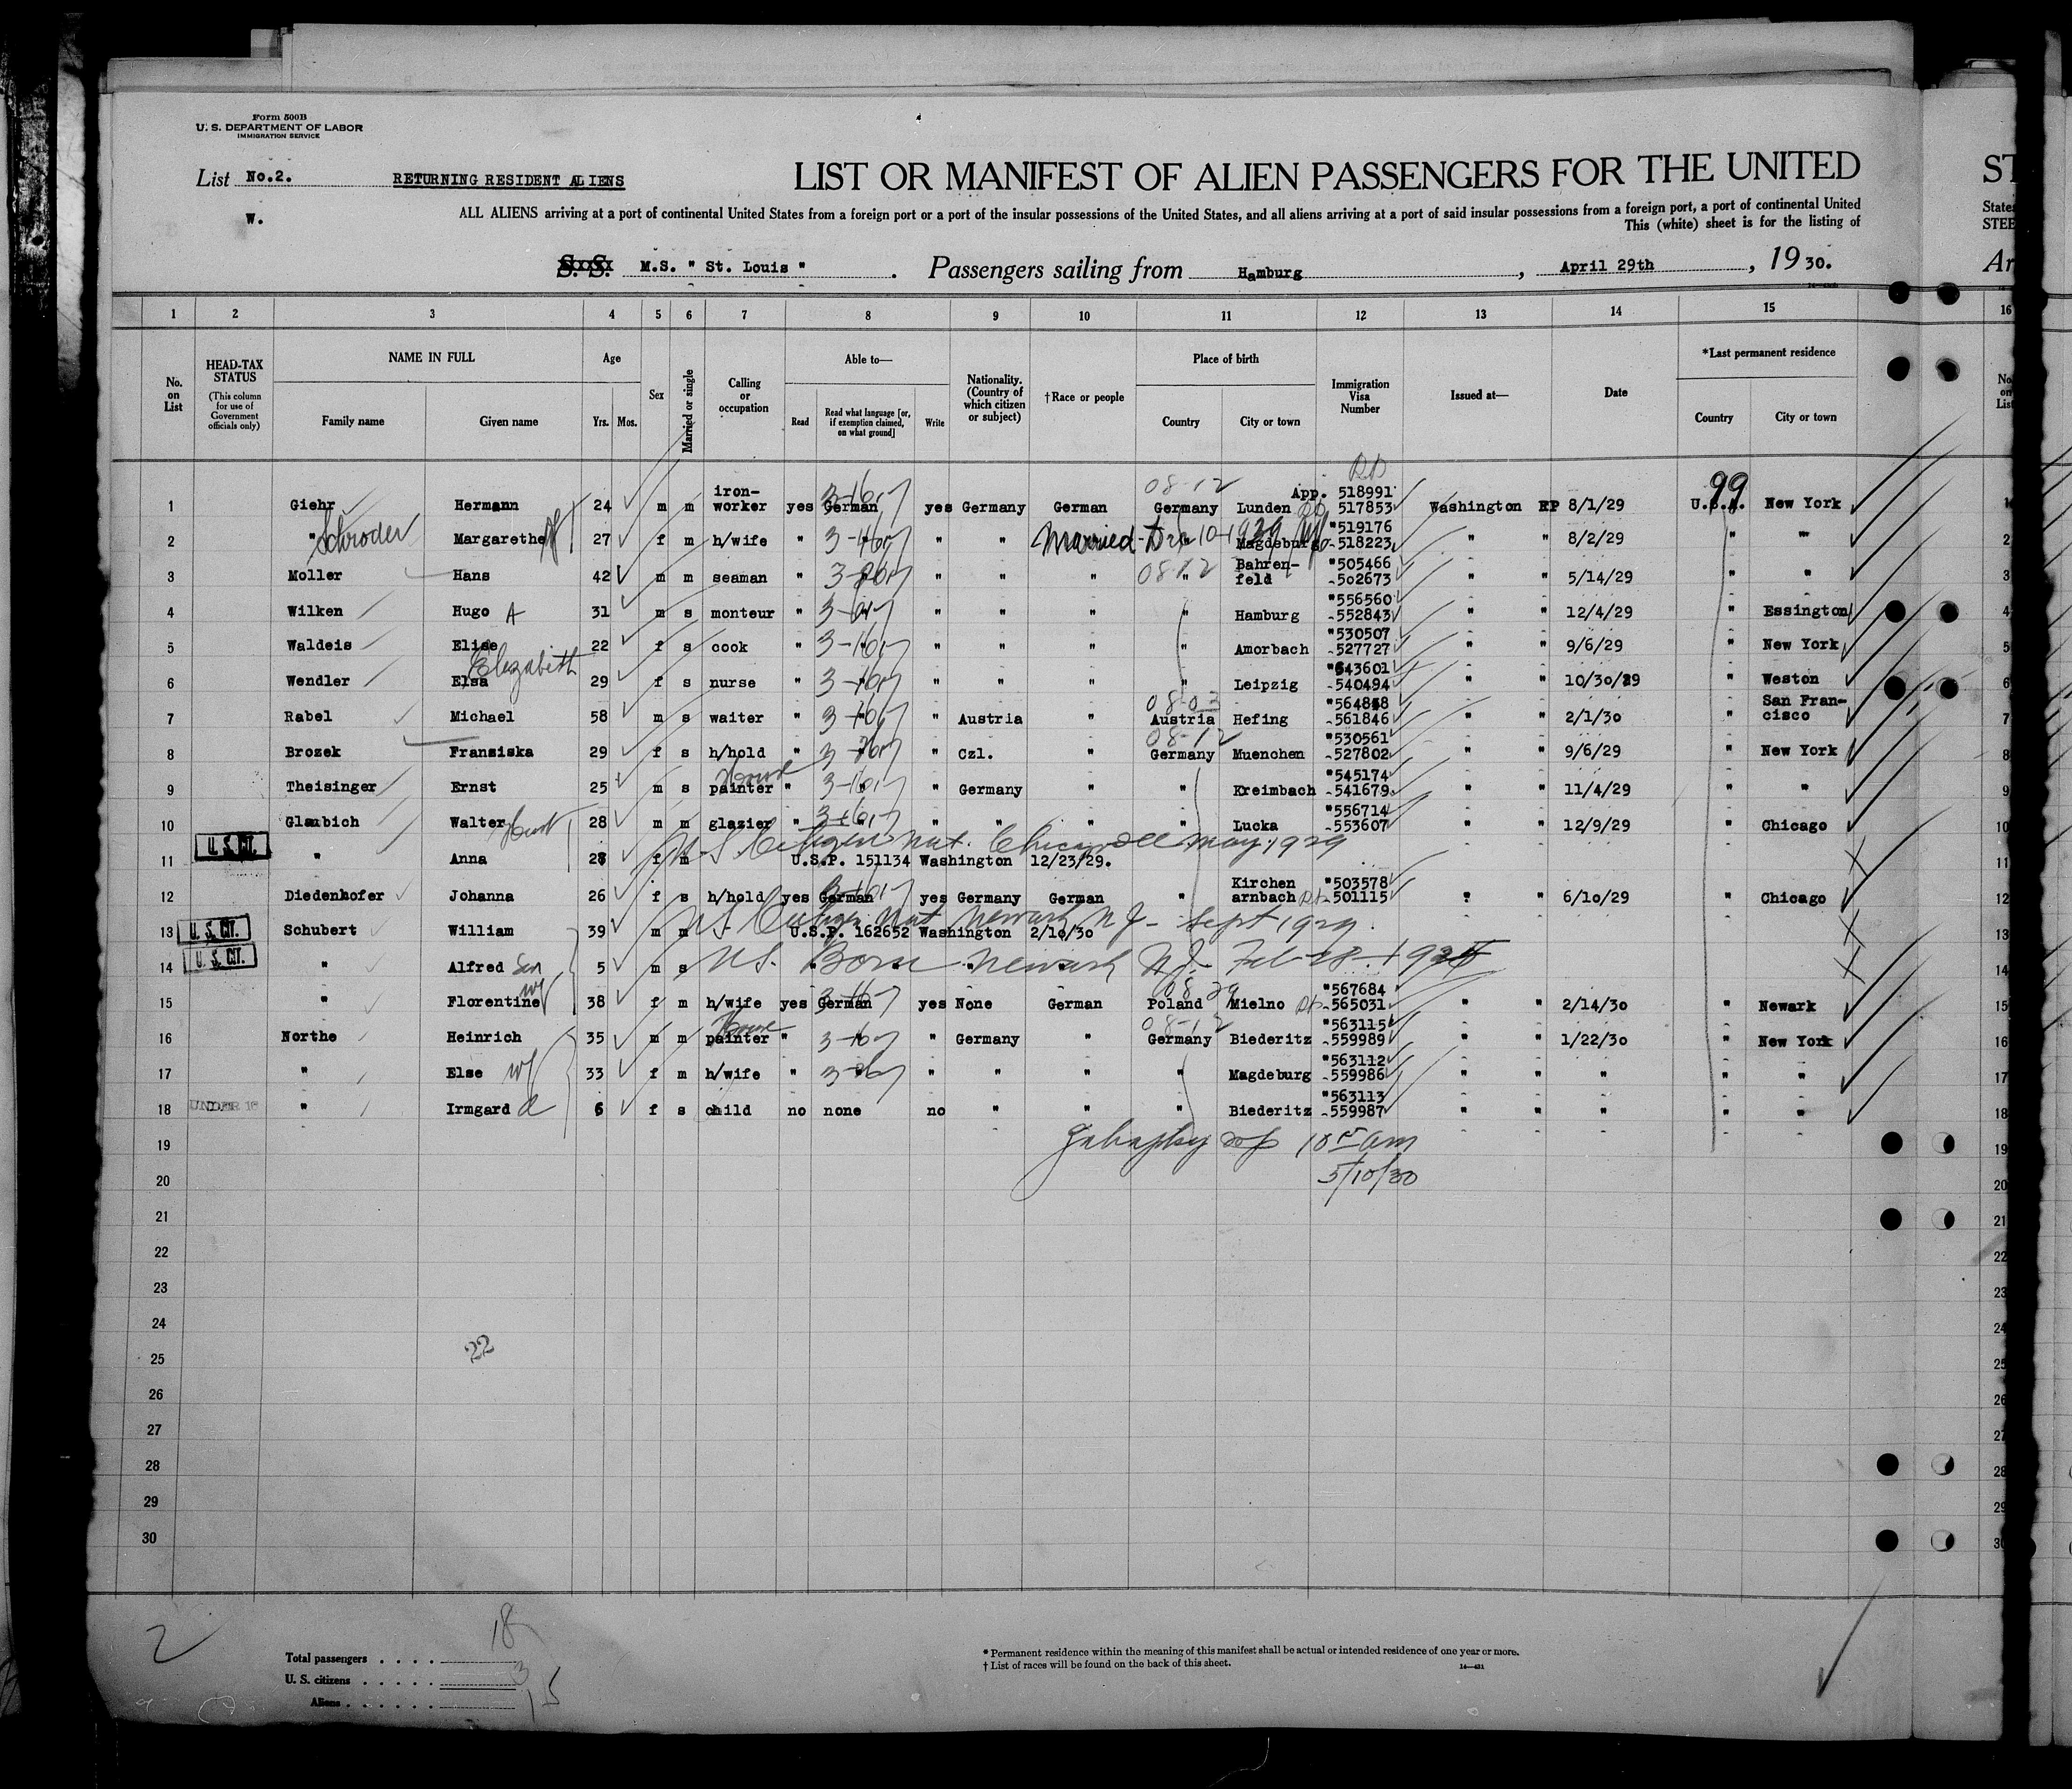 Form 500B
U. S. DEPARTMENT OF LABOR
IMMIGRATION SERVICE
List No.2. RETURNING RESIDENT ALIENS
W.
LIST OR MANIFEST OF ALIEN PASSENGERS FOR THE UNITED
ALL ALIENS arriving at a port of continental United States from a foreign port or a port of the insular possessions of the United States, and all aliens arriving at a port of said insular possessions from a foreign port, a port of continental United
This (white) sheet is for the listing of
S. S. M.S. " St. Louis " . Passengers sailing from Hamburg , April 29th , 19 30.
1 2 3 4 5 6 7 8 9 10 11 12 13 14 15 16
No. on List
HEAD-TAX STATUS
(This column for use of Government officials only)
NAME IN FULL
Family name Given name
Age
Yrs. Mos.
Sex
Married or single
Calling or occupation
Able to—
Read Read what language [or, if exemption claimed, on what ground] Write
Nationality. (Country of which citizen or subject)
†Race or people
Place of birth
Country City or town
Immigration Visa Number
Issued at—
Date
*Last permanent residence
Country City or town
1 Giehr Hermann 24 m m iron-worker yes German yes Germany German Germany Lunden App. 518991 517853 Washington RP 8/1/29 U.S.A. New York
99
08-12
2 " Schroder Margarethe 27 f m h/wife " " " " " Magdeburg "519176 -518223 " " 8/2/29 " "
Married Dec 10-1929
3 Moller Hans 42 m m seaman " " " " " Bahren-feld "505466 -502673 " " 5/14/29 " "
08-12
4 Wilken Hugo A 31 m s monteur " " " " " Hamburg "556560 -552843 " " 12/4/29 " Essington
5 Waldeis Elise 22 f s cook " " " " " Amorbach "530507 -527727 " " 9/6/29 " New York
Elizabeth
6 Wendler Elsa 29 f s nurse " " " " " Leipzig "543601 -540494 " " 10/30/29 " Weston
7 Rabel Michael 58 m s waiter " " " Austria " Austria Hefing -561846 " " 2/1/30 " San Fran-cisco
08-03
8 Brozek Franziska 29 f s h/hold " " " Czl. " Germany Muenchen "530561 -527802 " " 9/6/29 " New York
08-12
9 Theisinger Ernst 25 m s painter " " " Germany " " Kreimbach "545174 -541679 " " 11/4/29 " "
House
10 Glaubich Walter 28 m m glazier " " " " " " Lucka "556714 -553607 " " 12/9/29 " Chicago
U.S. Citizen Nat. Chicago Ill May, 1929
11 U.S. CIT. " Anna 28 f m U.S.P. 151134 Washington 12/23/29.
12 Diedenhofer Johanna 26 f s h/hold yes German yes Germany German " Kirchen arnbach "503578 -501115 " " 6/10/29 " Chicago
U.S Citizen Nat Newark N J - Sept 1929.
13 U.S. CIT. Schubert William 39 m m U.S.P. 162652 Washington 2/10/30
14 U.S. CIT. " Alfred Son 5 m s U.S. Born Newark N.J.
15 " Florentine wf 38 f m h/wife yes German yes None German Poland Mielno "567684 -565031 " " 2/14/30 " Newark
16 Northe Heinrich 35 m m painter " " " Germany " Germany Biederitz "563115 -559989 " " 1/22/30 " New York
House
08-12
17 " Else wf 33 f m h/wife " " " " " " Magdeburg "563112 -559986 " " " " "
18 UNDER 16 " Irmgard d 6 f s child no none no " " " Biederitz "563113 -559987 " " " " "
19
5/10/30
20
21
22
23
24
22
25
26
27
28
29
30
2
Total passengers . . . . 18
U. S. citizens . . . . . 3
Aliens . . . . . . 15
* Permanent residence within the meaning of this manifest shall be actual or intended residence of one year or more.
† List of races will be found on the back of this sheet.